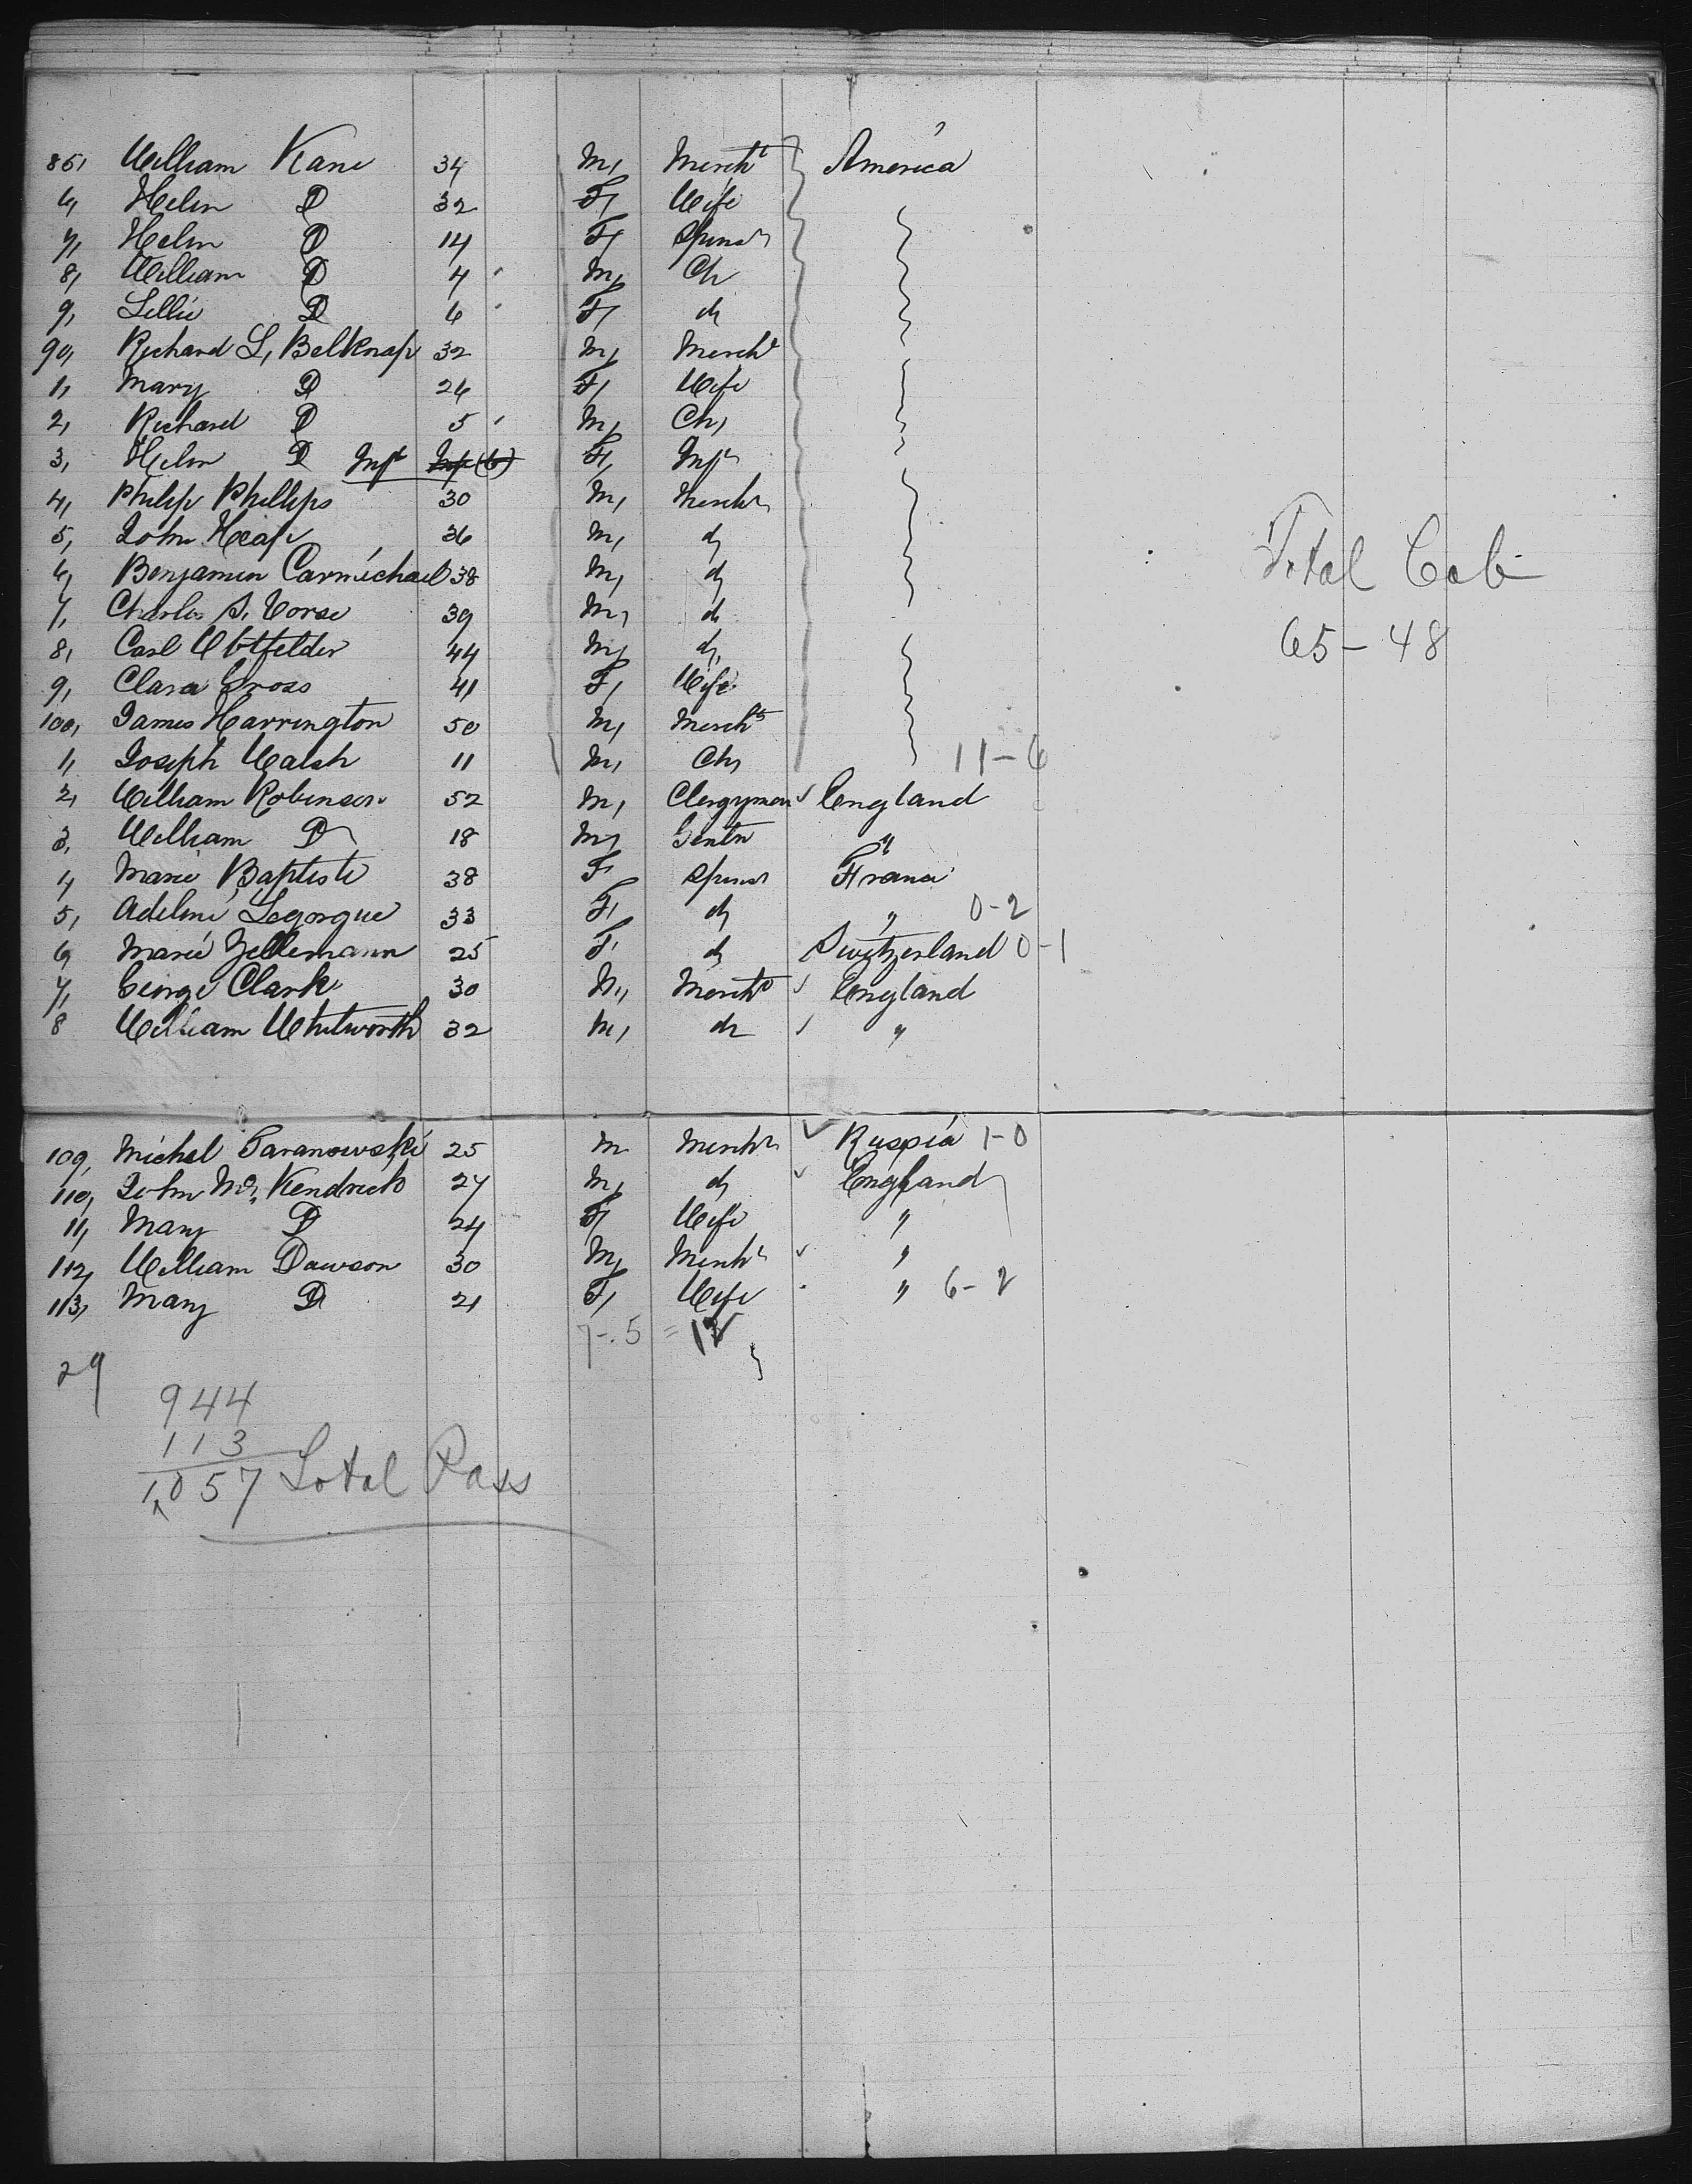 85, William Kane 34 M, Mercht America
6, Helen D 32 F, Wife
7, Helen D 14 F, Spinsr
8, William D 4 M, Ch
9, Lillie D 6 F, d
90, Richard L, Belknap 32 M, Mercht
1, Mary D 26 F, Wife
2, Richard D 5 M, Ch,
3, Helen D Inft F, Inft
4, Philip Phillips 30 M, Mercht
5, John Heap 36 M, d
6, Benjamin Carmichael 38 M, d
7, Charles S. 39 M, d
8, Carl 44 M, d,
9, Clara Gross 41 F, Wife
100, James Harrington 50 M, Mercht
1, Joseph Walsh 11 M, Ch, 11-6
2, William Robinson 52 M, Clergyman England
3, William D 18 M, Gentn "
4, Marie Baptiste 38 F, Spinsr France
5, Adeline Legorgue 33 F, d " 0-2
6, Marie Zellemann 25 F, d Switzerland 0-1
7, George Clark 30 M, Mercht England
8 William Whitworth 32 M, do "
109, Michel Taranowski 25 M Mercht Russia 1-0
110, John Mc, Kendrick 27 M, d England
11, Mary D 24 F, Wife "
112, William Dawson 30 M, Mercht "
113, Mary D 21 F, Wife " 6-2
7-5 = 12
29
944
113
1,057 Total Pass
Total Cab
65-48